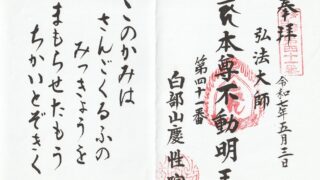 奉拝
弘法大師
令和七年五月三日
本尊不動明王
第四十番
白部山慶性院
このかみは
さんごくるふの
みつきょうを
まもらせたもう
ちかいとぞきく